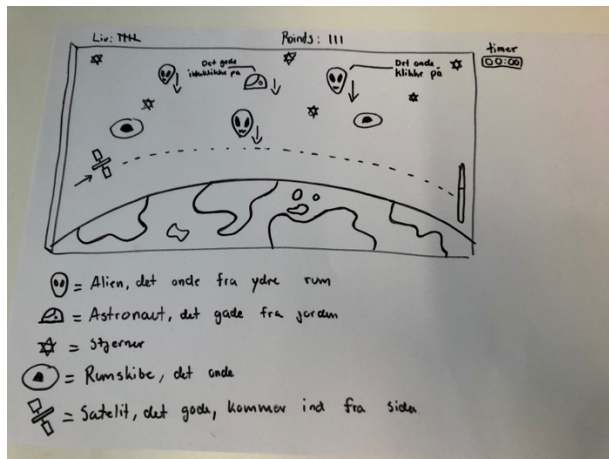 Liv: IIII
Points: III
timer
00:00
Det gode
ikke klikke på
Det onde
klikke på
= Alien, det onde fra ydre rum
= Astronaut, det gode fra jorden
= Stjerner
= Rumskibe, det onde
= Satelit, det gode, kommer ind fra siden